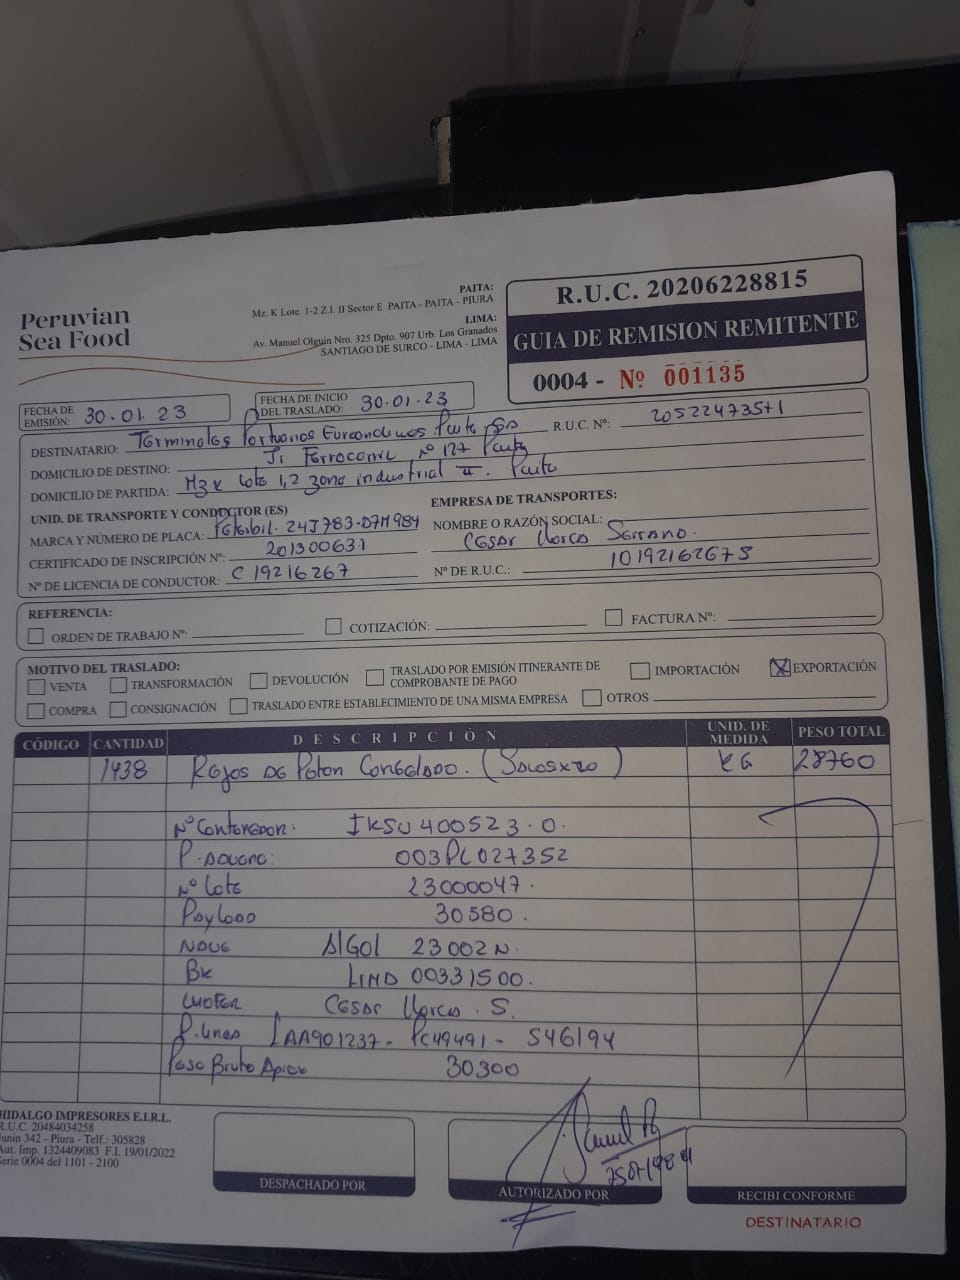 Peruvian
Sea Food
PAITA:
Mz. K Lote. 1-2 Z.I. II Sector E PAITA - PAITA - PIURA
LIMA:
Av. Manuel Olguin Nro. 325 Dpto. 907 Urb. Los Granados
SANTIAGO DE SURCO - LIMA - LIMA
R.U.C. 20206228815
GUIA DE REMISION REMITENTE
0004 - Nº 001135
FECHA DE EMISIÓN: 30.01.23
FECHA DE INICIO DEL TRASLADO: 30.01.23
DESTINATARIO: Terminales Portuarios Euroandinos Paita
R.U.C. Nº: 20522473571
DOMICILIO DE DESTINO: Jr Ferrocarril Nº 127 Paita
DOMICILIO DE PARTIDA: Mz K Lote 1,2 zona industrial II. Paita
UNID. DE TRANSPORTE Y CONDUCTOR (ES)
MARCA Y NÚMERO DE PLACA:
CERTIFICADO DE INSCRIPCIÓN Nº: 201300631
Nº DE LICENCIA DE CONDUCTOR: C 19216267
EMPRESA DE TRANSPORTES:
NOMBRE O RAZÓN SOCIAL: Cesar Llorca Serrano.
Nº DE R.U.C.: 10192162675
REFERENCIA:
ORDEN DE TRABAJO Nº:
COTIZACIÓN:
FACTURA Nº:
MOTIVO DEL TRASLADO:
VENTA TRANSFORMACIÓN DEVOLUCIÓN TRASLADO POR EMISIÓN ITINERANTE DE COMPROBANTE DE PAGO IMPORTACIÓN EXPORTACIÓN
COMPRA CONSIGNACIÓN TRASLADO ENTRE ESTABLECIMIENTO DE UNA MISMA EMPRESA OTROS
CÓDIGO CANTIDAD DESCRIPCIÓN UNID. DE MEDIDA PESO TOTAL
1438 Rejos de Poton Congelado. (Sacosx20) KG 28760
Nº Contenedor: IKSU 400523.0.
P. Aduana: 003PL027352
Nº Lote 23000047.
Payload 30580.
Nave AlGol 23002N.
Bk LIMD 00331500.
Chofer Cesar Llorca. S.
P. Linea LAA901237- PC49491- 546194
Peso Bruto Aprox 30300
HIDALGO IMPRESORES E.I.R.L.
R.U.C. 20484034258
Junin 342 - Piura - Telf.: 305828
Aut. Imp. 1324409083 F.I. 19/01/2022
Serie 0004 del 1101 - 2100
DESPACHADO POR
AUTORIZADO POR
RECIBI CONFORME
DESTINATARIO